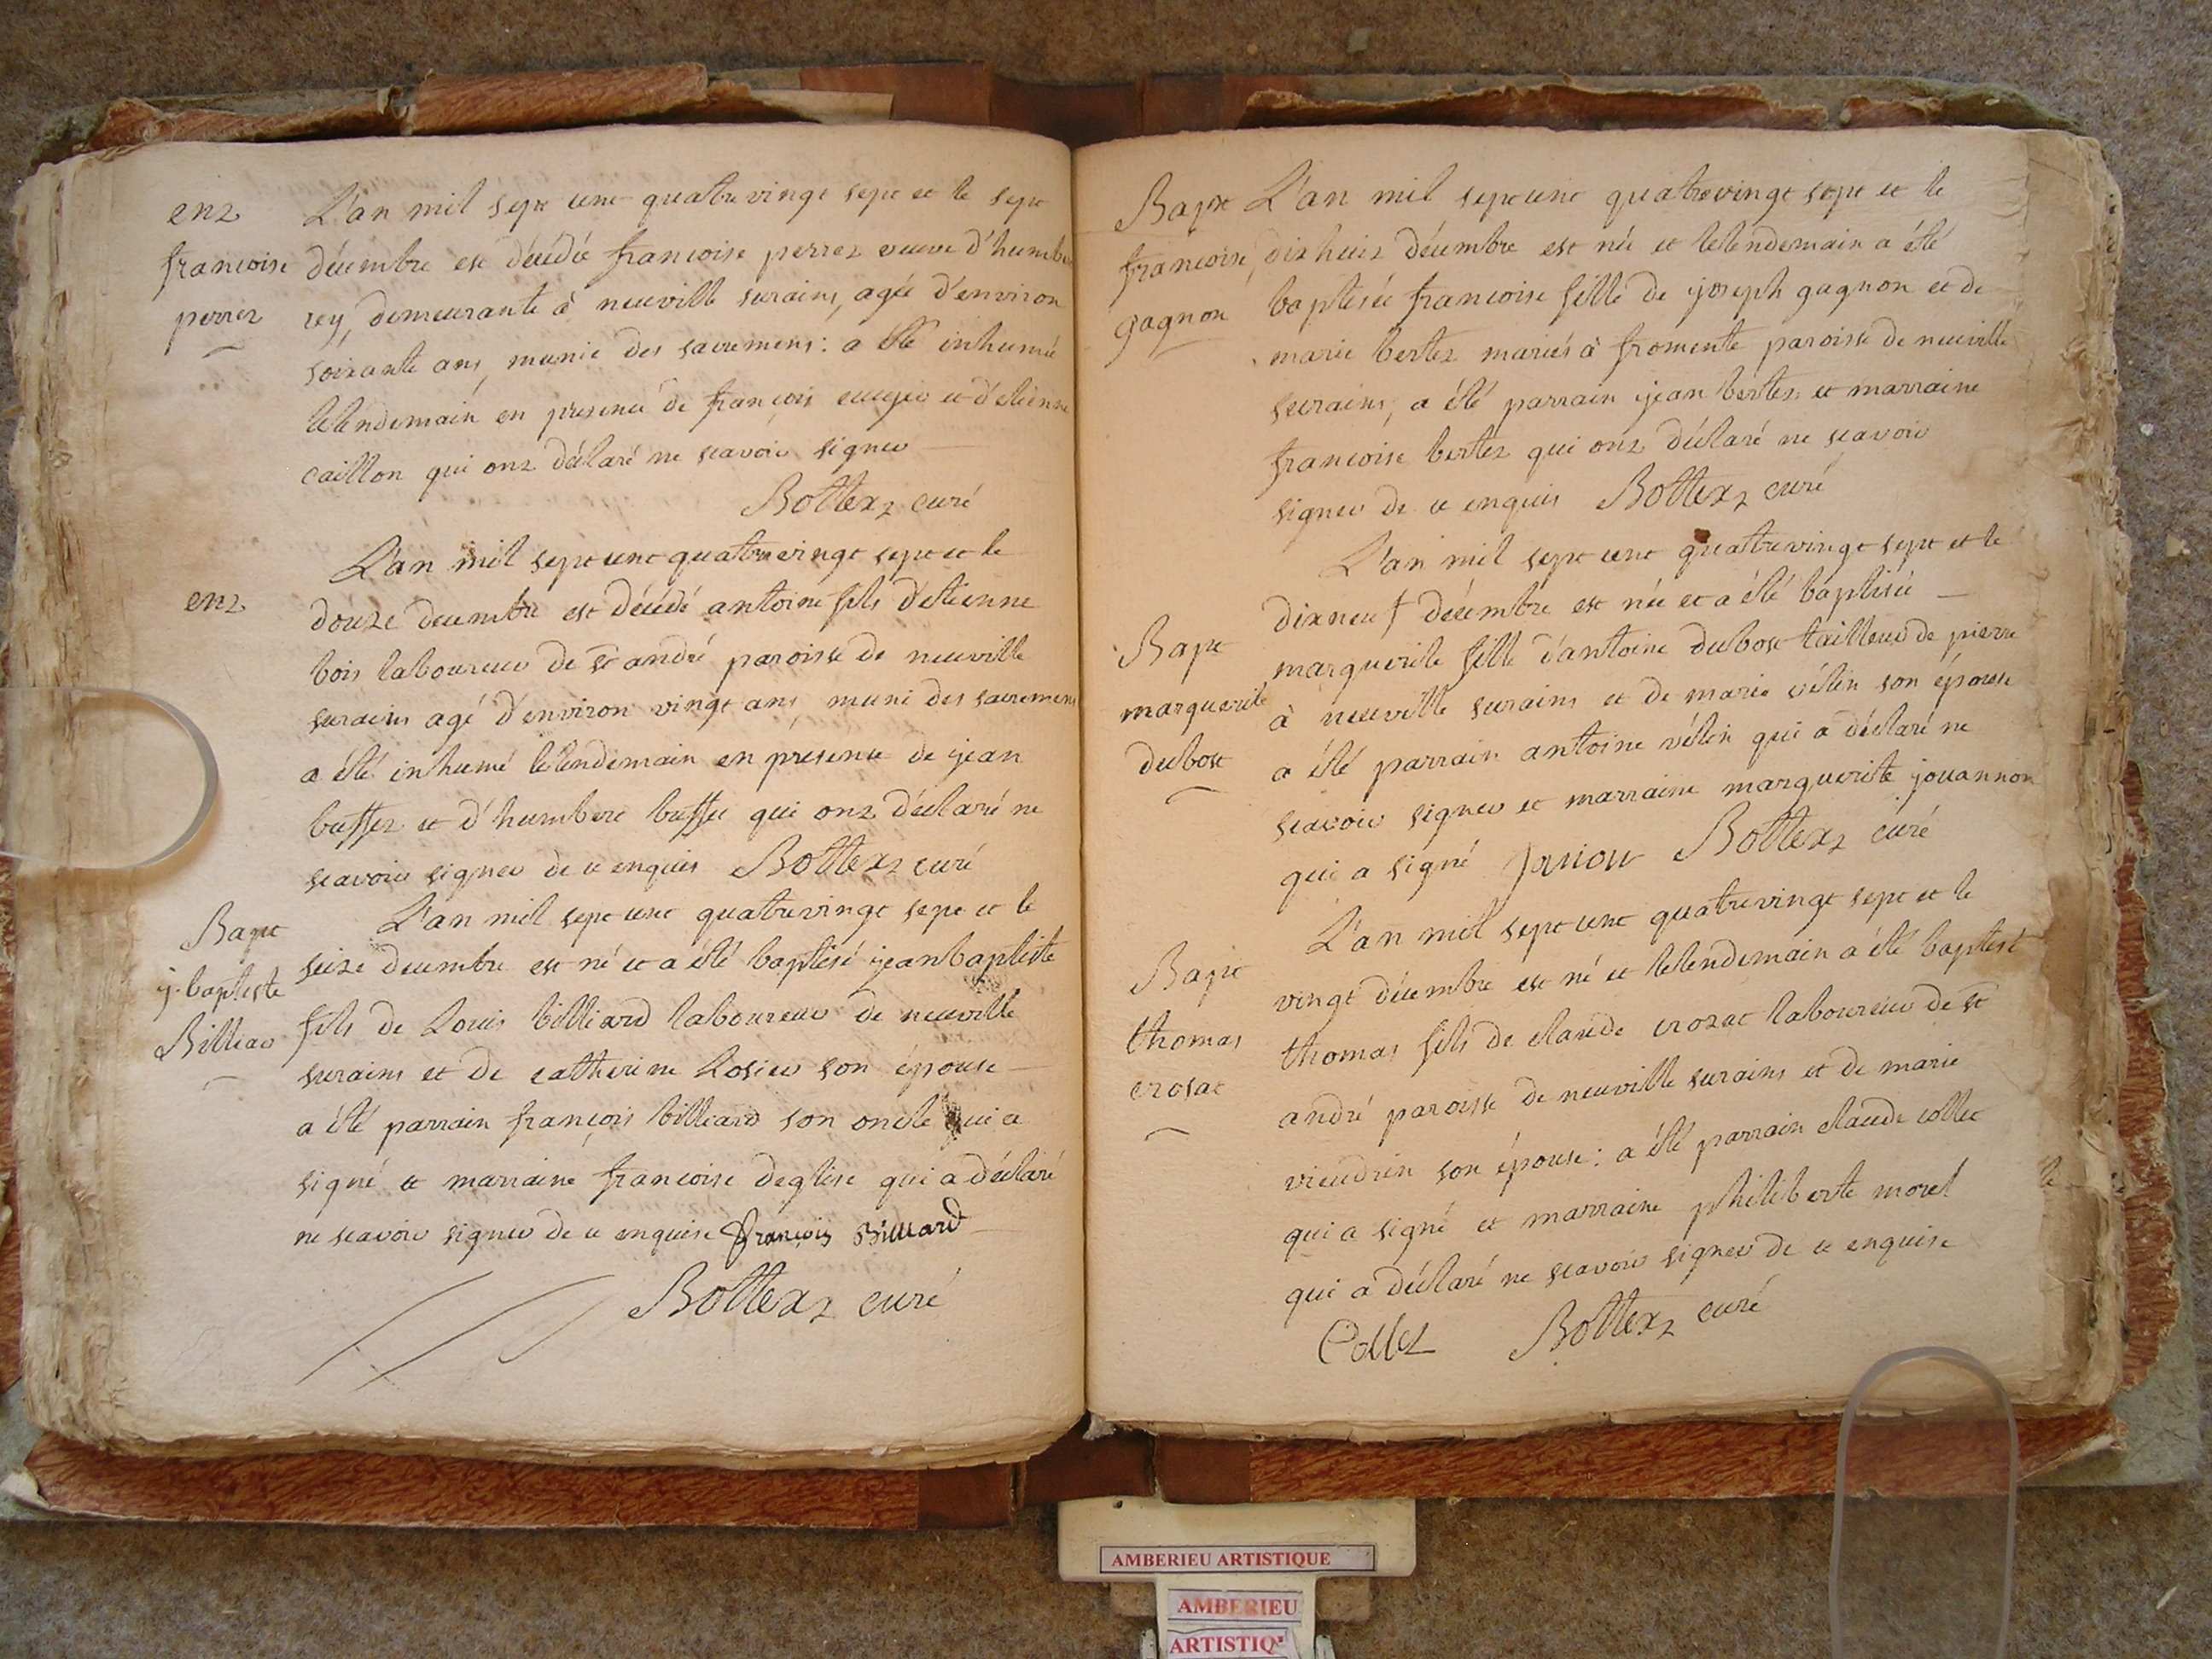 ent
francoise
perret
L'an mil sept cent quatre vingt sept et le sept
décembre est décédée francoise perret veuve d'humber
rey, demeurante à neuville surains, agée d'environ
soixante ans, munie des sacremens: a été inhumée
lelendemain en presence de francois et d'etienne
caillon qui ont déclaré ne scavoir signer
Bottex curé
ent
L'an mil sept cent quatre vingt sept et le
douze decembre est décédé antoine fils d'etienne
bois laboureur de st andré paroisse de neuville
surains agé d'environ vingt ans, muni des sacremens
a été inhumé lelendemain en présence de jean
buffet et d'humbert buffet qui ont déclaré ne
scavoir signer de ce enquis Bottex curé
Bapt
j. baptiste
Billiar
L'an mil sept cent quatrevingt sept et le
seize decembre est né et a été baptisé jeanbaptiste
fils de Louis billiard laboureur de neuville
surains et de catherine Rosier son épouse
a été parrain françois billiard son oncle qui a
signé et marraine francoise deglise qui a déclaré
ne scavoir signer de ce enquise françois Billiard
Bottex curé
Bapt
francoise
gagnon
L'an mil sept cent quatrevingt sept et le
dixhuit décembre est née et lelendemain a été
baptisée francoise fille de joseph gagnon et de
marie bertet mariés à fromente paroisse de neuville
surains, a été parrain jean bertet et marraine
francoise bertet qui ont déclaré ne scavoir
signer de ce enquis Bottex curé
Bapt
marguerite
dubost
L'an mil sept cent quatrevingt sept et le
dixneuf décembre est née et a été baptisée
marguerite fille d'antoine dubost tailleur de pierre
à neuville surains et de marie vélin son épouse
a été parrain antoine vélin qui a déclaré ne
scavoir signer et marraine marguerite jouannon
qui a signé Bottex curé
Bapt
thomas
crosat
L'an mil sept cent quatrevingt sept et le
vingt décembre est né et lelendemain a été baptisé
thomas fils de claude crozat laboureur de st
andré paroisse de neuville surains et de marie
vieudrin son épouse: a été parrain claude collet
qui a signé et marraine philiberte morel
qui a déclaré ne scavoir signer de ce enquise
Collet Bottex curé
AMBERIEU ARTISTIQUE
AMBERIEU
ARTISTIQ